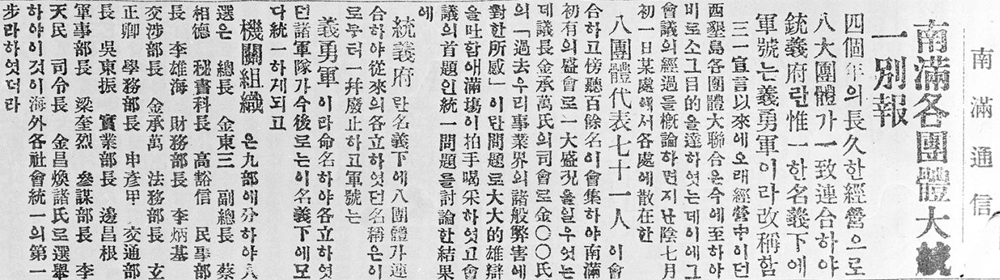 南滿通信
南滿各團體大統
一別報
四個年의長久한經營으로
八大團體가一致連合하야
統義府란惟一한名義下에
軍號는義勇軍이라改稱함
三一宣言以來에오래經營中이던
西墾島各團體大聯合은今에至하야
비로소그目的을達하엿는데이에그
議會의經過를槪論하면지난陰七月
初一日某處에서各處에散在한
八團體代表七十一人이會
合하고傍聽百餘名이會集하야南滿
初有의盛會로一大盛況을일우엇는
데議長金承萬氏의司會로金〇〇氏
의「過去우리事業界의諸般弊害에
對한所感」이란問題로大大的雄辯
을吐함애滿場이拍手喝采하엿고會
議의首題인統一問題를討論한結果
에
統義府란名義下에八團體가連
合하야從來의各立하엿던名稱은이
로부터一幷廢止하고軍號는
義勇軍이라命名하야各立하엿
던諸軍隊가今後로는이名義下에모
다統一하게되고
機關組織은九部에分하야人
選은 總長 金東三 副總長 蔡
相悳 秘書科長 高豁信 民事部
長 李雄海 財務部長 李炳基
交涉部長 金承萬 法務部長 玄
正卿 學務部長 申彦甲 交通部
長 吳東振 實業部長 邊昌根
軍事部長 梁奎烈 參謀部長 李
天民 司令長 金昌煥諸氏로選擧
하야이것이海外各社會統一의第一
步라하엿더라